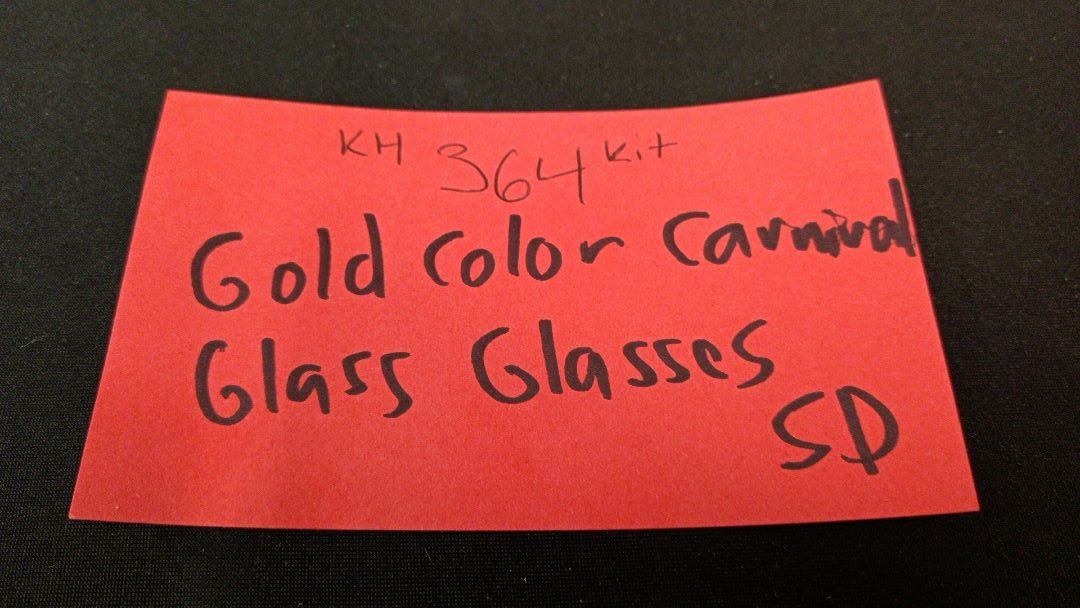 KH 364 Kit
Gold Color Carnival
Glass Glasses
SD